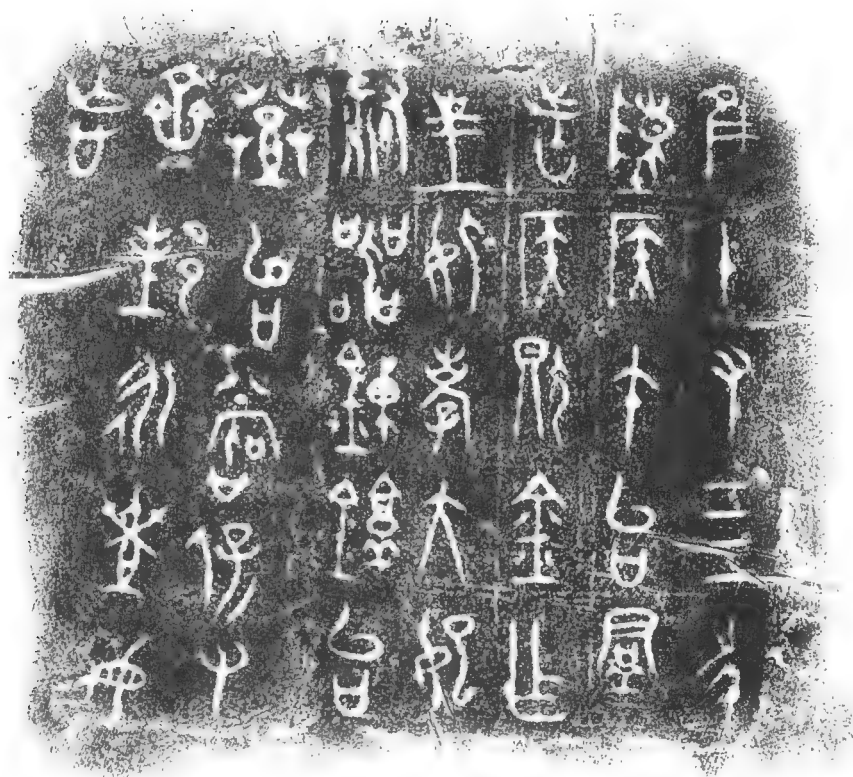 隹十又四年
陳侯午台群
者侯獻金乍
皇妣孝大妃
祭器鎛錞台
登台嘗保又
齊邦永世母
忘